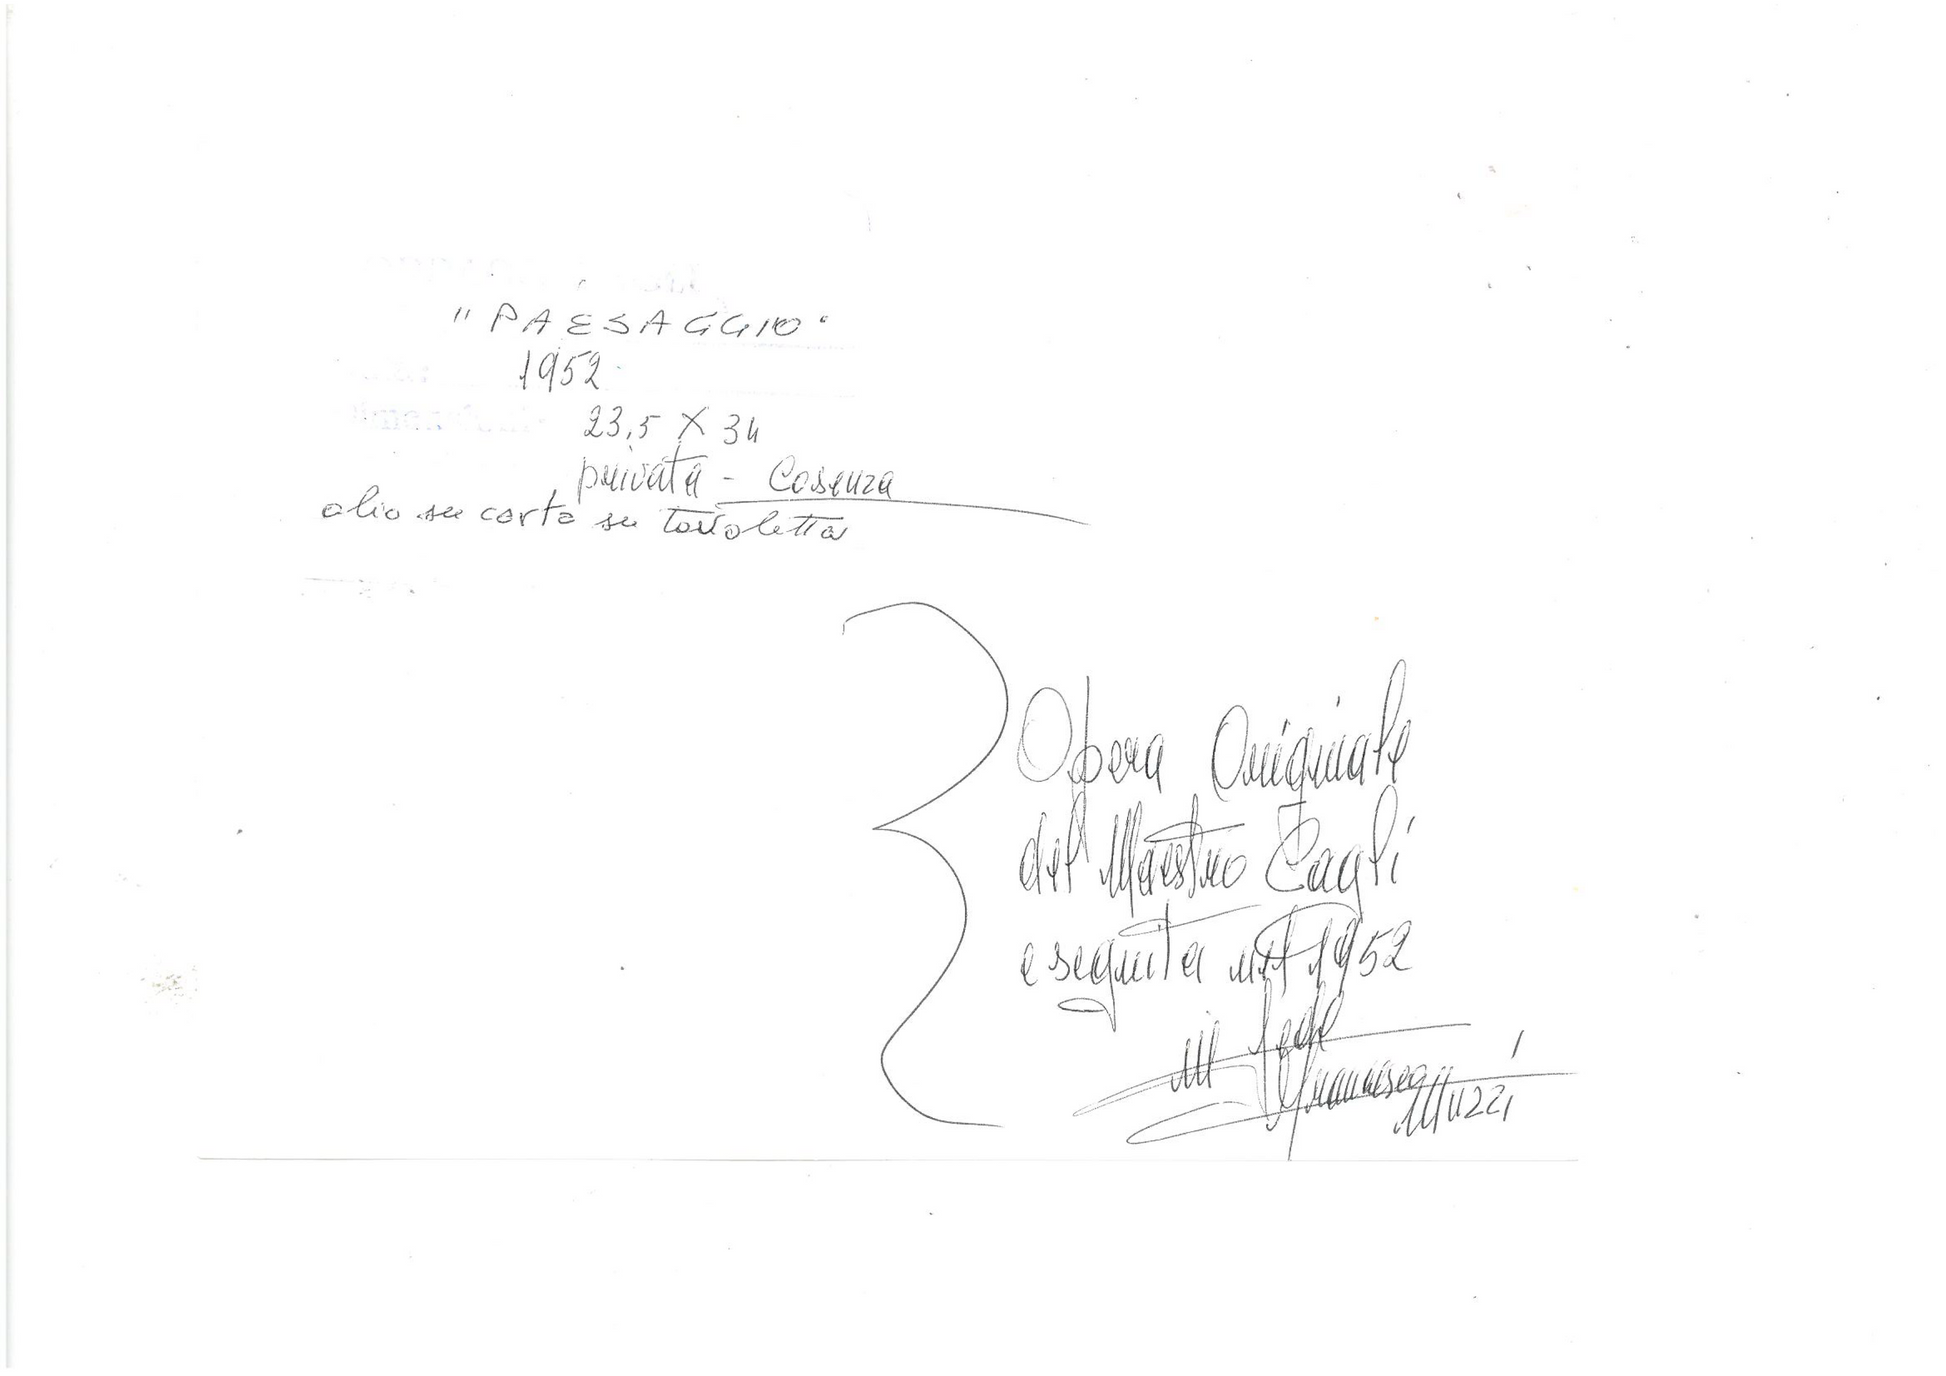 "PAESAGGIO"
1952
23,5 X 34
privata - Cosenza
olio su carta su tavoletta
Opera Originale
del Maestro Cagli
eseguita nel 1952
in fede
Francesco Muzzi